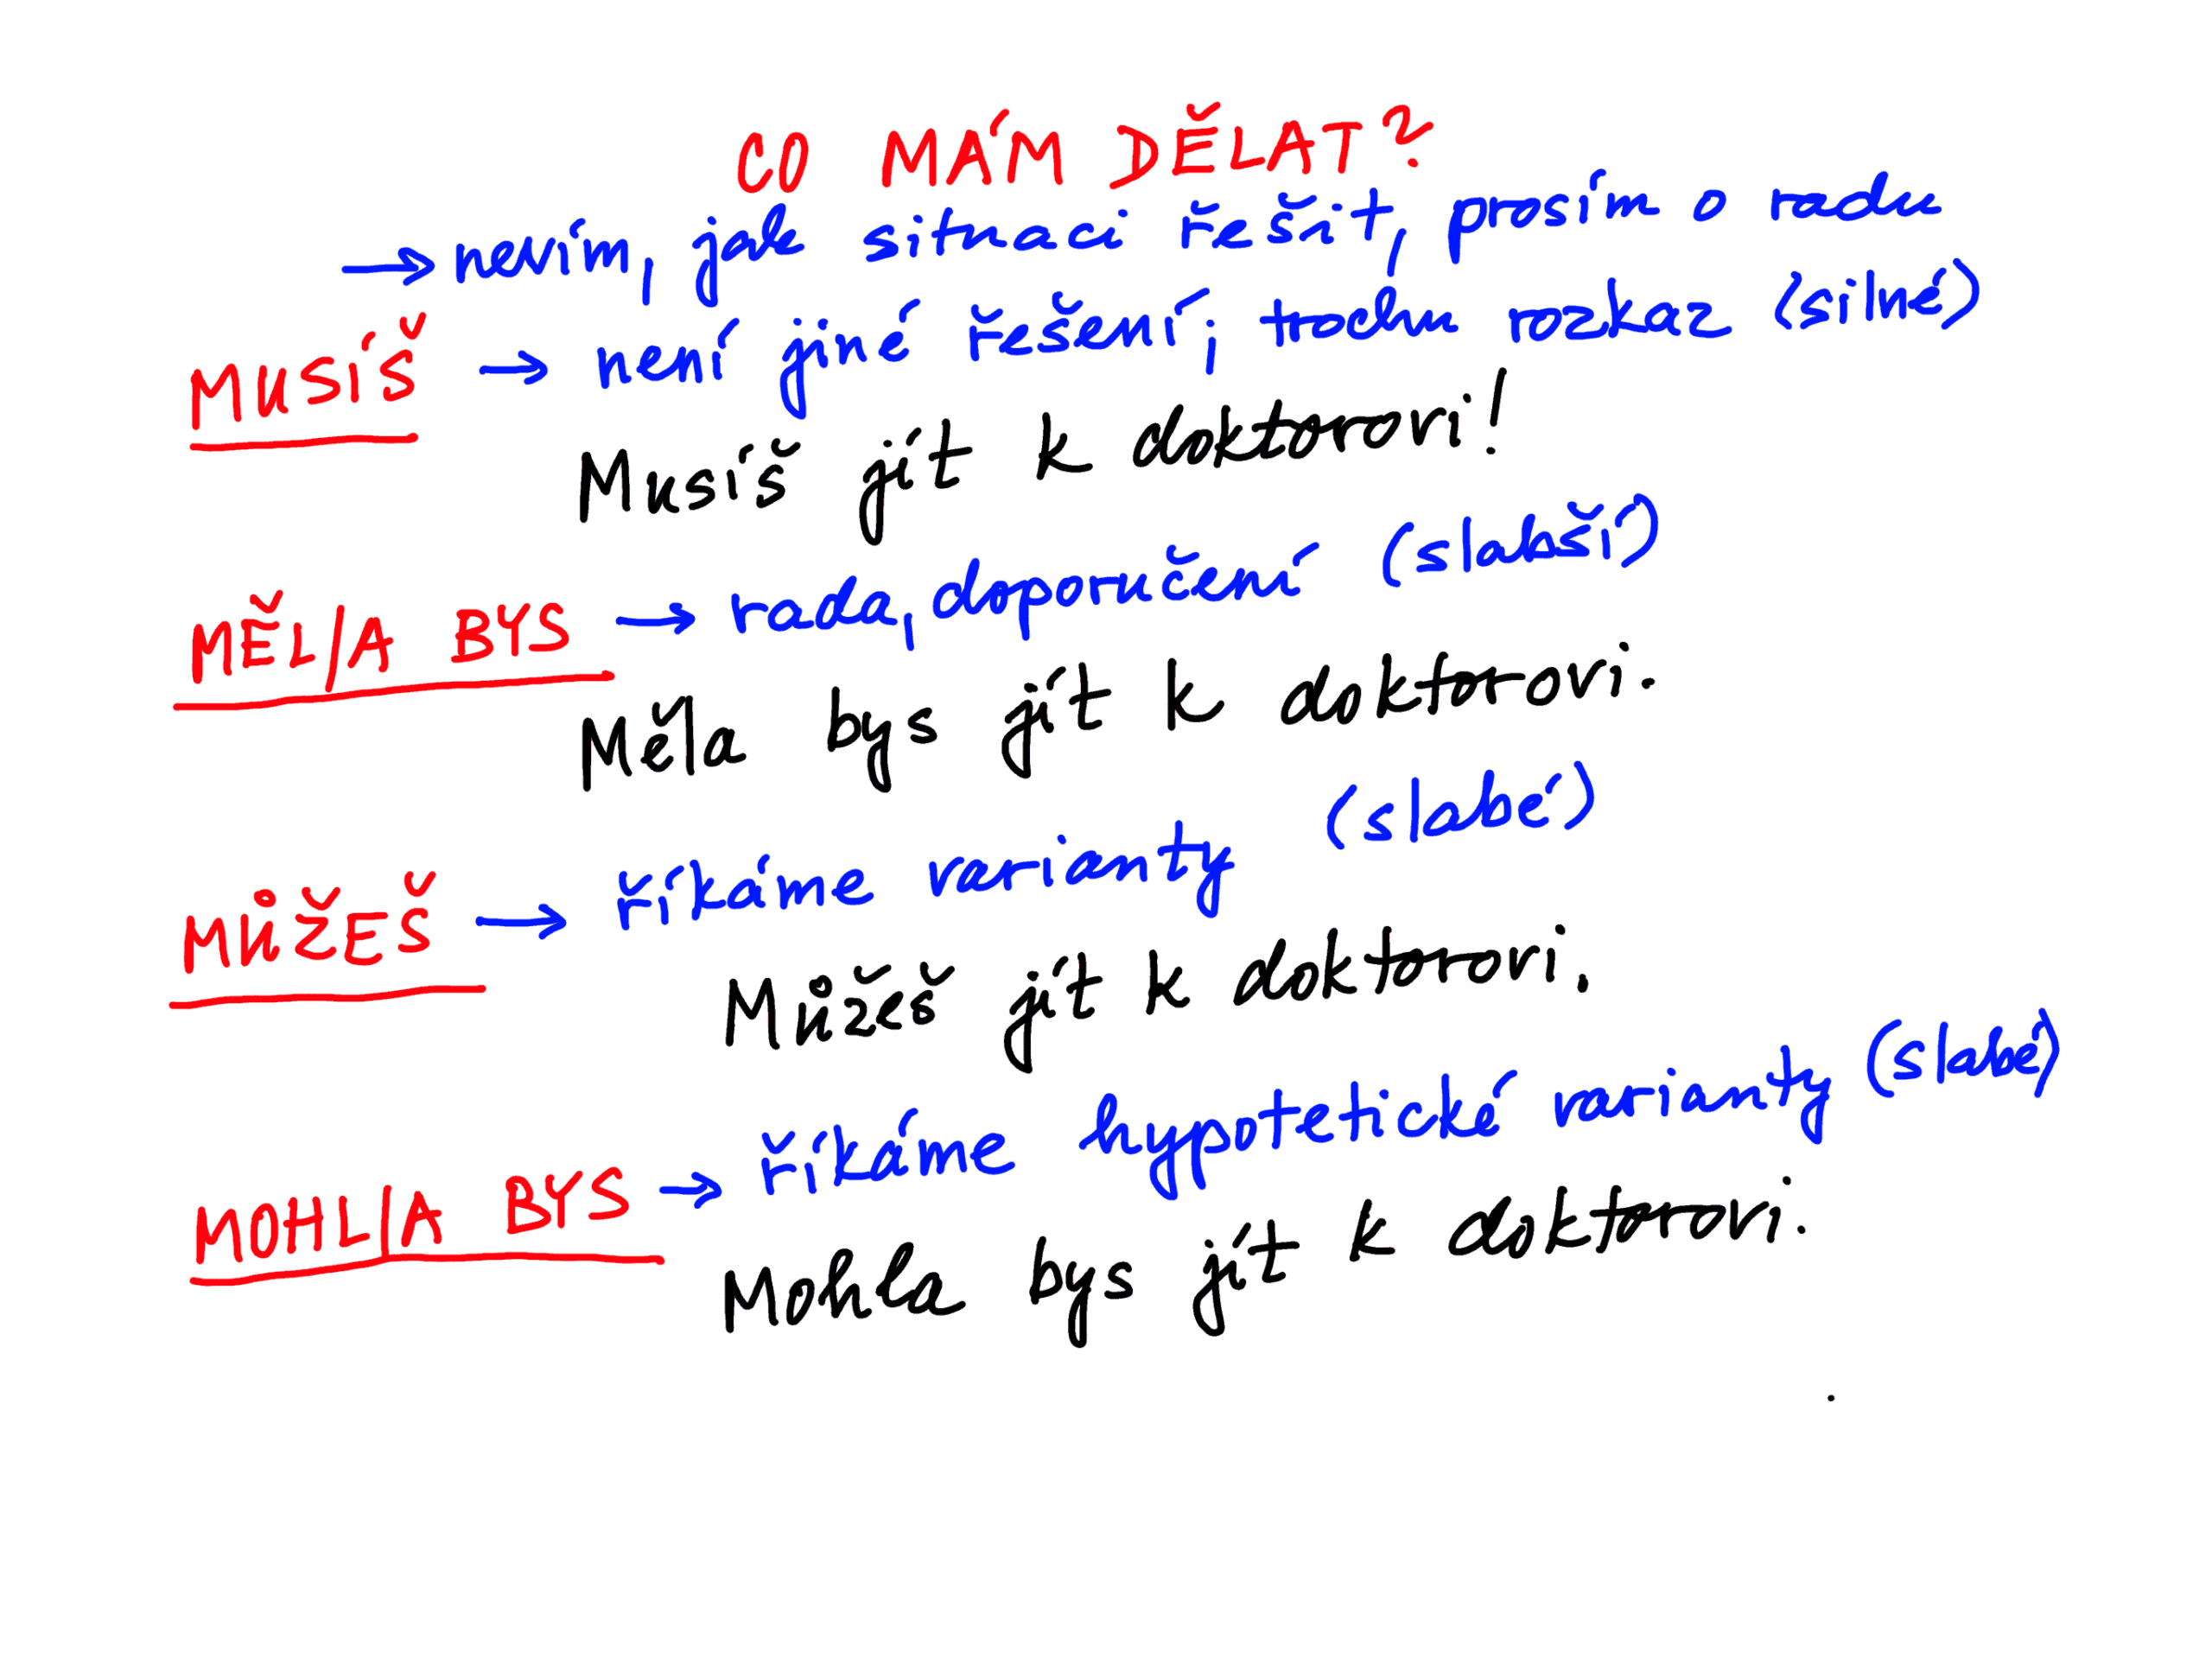 CO MÁM DĚLAT?
→ nevím, jak situaci řešit, prosím o radu
MUSÍŠ → není jiné řešení; trochu rozkaz (silné)
Musíš jít k doktorovi!
MĚL/A BYS → rada, doporučení (slabší)
Měla bys jít k doktorovi.
MŮŽEŠ → říkáme varianty (slabé)
Můžeš jít k doktorovi.
MOHL/A BYS → říkáme hypotetické varianty (slabé)
Mohla bys jít k doktorovi.